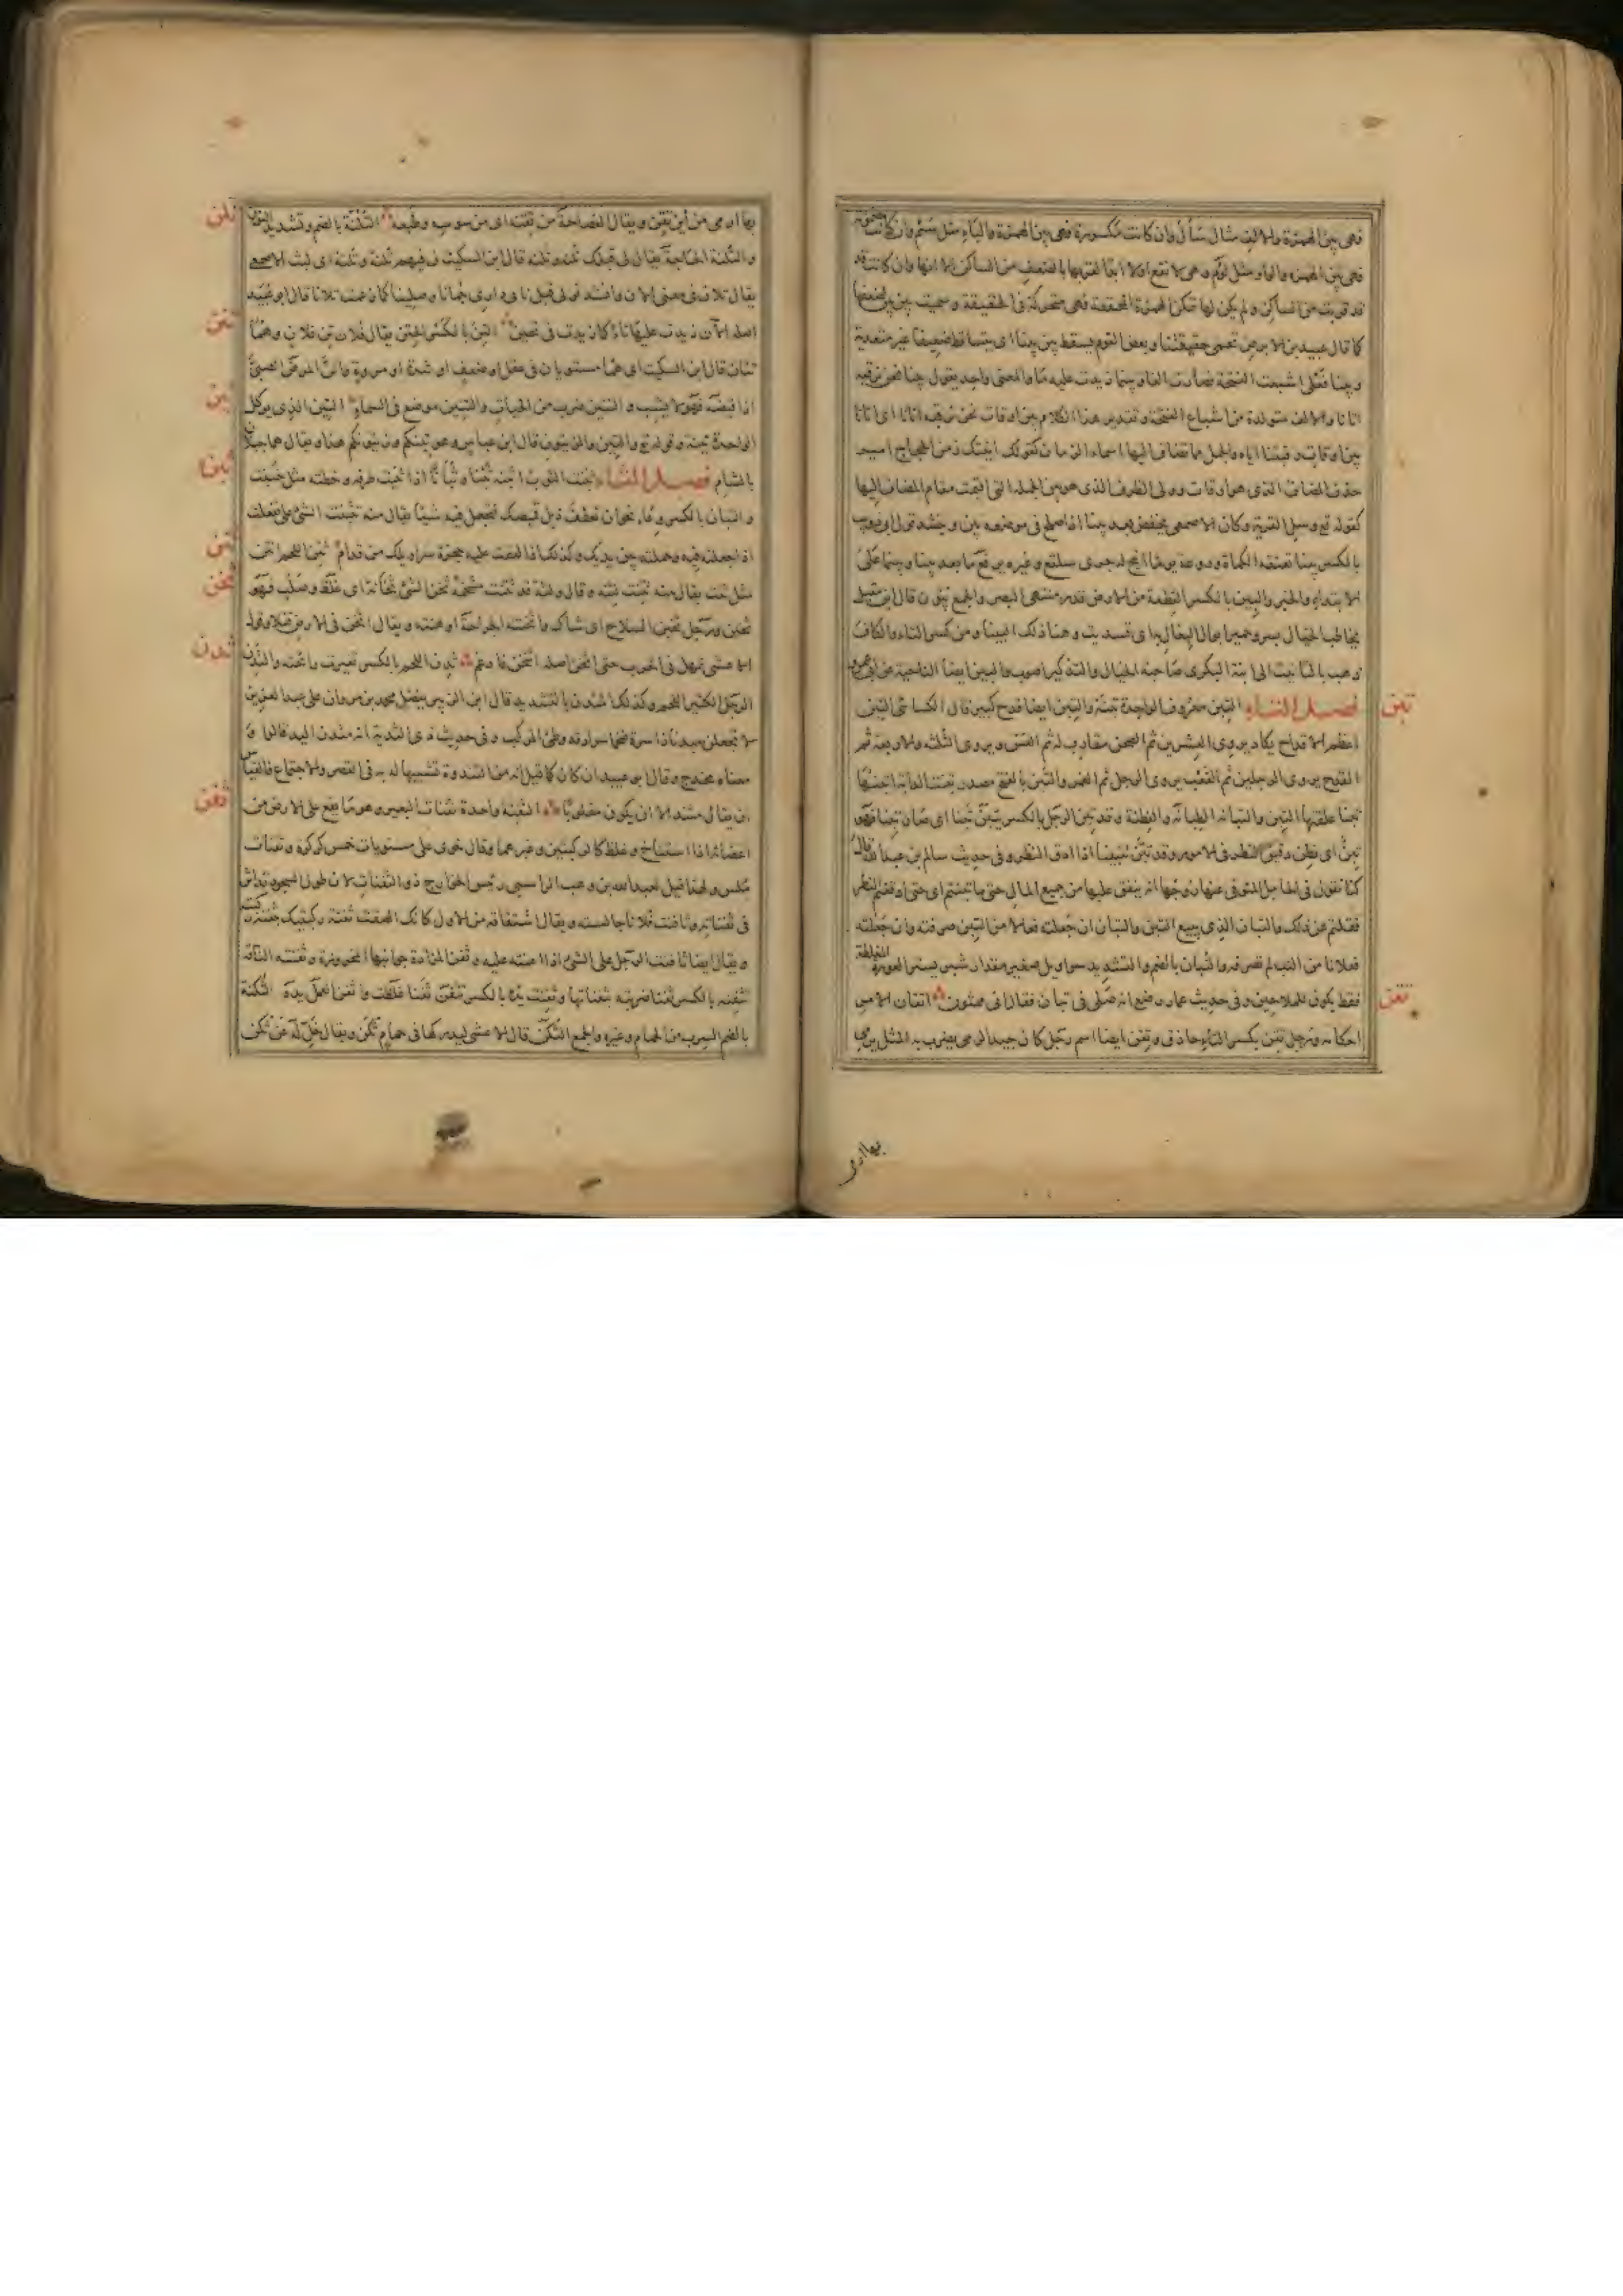 فهى بين الهمزة والالف مثال سأل وان كانت مكسورة فهى بين الهمزة والياء مثل سئم وان كانت مضمومة
فهى بين الهمزة والواو مثل لؤم وهى لا تقع اولا ابدا لقربها بالضعف من الساكن الا انها وان كانت قد
قد قربت من الساكن ولم يكن لها تمكن الهمزة المحققة فهى متحركة فى الحقيقة وسميت بين بين لضعفها
كما قال عبيد بن الابرص تحمى حقيقتنا وبعض القوم يسقط بين بينا اى يتساقط ضعيفا غير متعدية
وبينا فعلى اشبعت الفتحة فصارت الفا وبينما زيدت عليه ما والمعنى واحد يقول بينا نحن نرقبه
اتانا والالف متولدة من اشباع الفتحة وتقدير هذا الكلام بين اوقات نحن نرقبه اتانا اى اتانا
بين اوقات رقبتنا اياه والجمل مما تضاف اليها اسماء الزمان كقولك اتيتك زمن الحجاج امير
حذف المضاف الذى هو اوقات وولى الظرف الذى هو بين الجملة التى اقيمت مقام المضاف اليها
كقوله تع وسل القرية وكان الاصمعى يخفض بعد بينا اذا صلح فى موضعه بين وينشد قول ابى ذويب
بالكسر بينا تعنقه الكماة وروغه يوما اتيح له جرى سلفع وغيره يرفع ما بعد بينا وبينما على
الابتداء والخبر والبين بالكسر القطعة من الارض قدر منتهى البصر والجمع بيون قال ابن مقبل
يخاطب الخيال بسرو حمير ابوال البغال به انى تسديت وهنا ذلك البينا ومن كسر التاء والكاف
ذهب بالتانيث الى ابنة البكرى صاحبة الخيال والتذكير اصوب والبين ايضا الناحية عن ابى عمرو
فصل التاء التبن معروف الواحدة تبنة والتبن ايضا قدح كبير قال الكسائى التبن
اعظم الاقداح يكاد يروى العشرين ثم الصحن مقارب له ثم العس يروى الثلثة والاربعة ثم
القدح يروى الرجلين ثم القعب يروى الرجل ثم الغمر والتبن بالفتح مصدر تبنت الدابة اتبنها
تبنا علفتها التبن والتبانة الطبانة والفطنة وقد تبن الرجل بالكسر يتبن تبنا اى صار تبنا فهو
تبن اى فطن دقيق النظر فى الامور وقد تبن تتبينا اذا ادق النظر وفى حديث سالم بن عبد الله قال
كنا نقول فى الحامل المتوفى عنها زوجها انه ينفق عليها من جميع المال حتى ما تبنتم اى حتى ادققتم النظر
فقلتم غير ذلك والتبان الذى يبيع التبن والتبان ان جعلته فعالا من التبن صرفته وان جعلته
فعلانا من التب لم تصرفه والتبان بالضم والتشديد سراويل صغير مقدار شبر يستر العورة المغلظة
فقط يكون للملاحين وفى حديث عمار رضع انه صلى فى تبان فقال انى ممثون اتقان الامر
احكامه ورجل تقن بكسر التاء حاذق وتقن ايضا اسم رجل كان جيد الرمى يضرب به المثل يرمى
تبن
تقن
بها ارمى
بها ارمى من ابن تقن ويقال الفصاحة من تقنه اى من سوسه وطبعه التلنة بالضم وتشديد النون
والتلنة الحاجة يقال لى قبلك تلنة وتلنة قال ابن السكيت لى فيهم تلنة وتلنة اى لبث الاصمعى
يقال تلان فى معنى الان وانشد نولى قبل ناى دارى جمانا وصلينا كما زعمت تلانا قال ابو عبيد
اصله الآن زيدت عليها تاء كما زيدت فى تحين التن بالكسر الحتن يقال فلان تن فلان وهما
تنان قال ابن السكيت اى هما مستويان فى عقل او ضعف او شدة او مروة واتن المرض الصبى
اذا قبضه فهو لا يشب والتنين ضرب من الحيات والتنين موضع فى السماء التين الذى يوكل
الواحدة تينة وقوله تع والتين والزيتون قال ابن عباس وهو تينكم وزيتونكم هذا ويقال هما جبلان
بالشام فصل الثاء ثبنت الثوب اثبنه ثبنا وثبانا اذا ثنيت طرفه وخطته مثل خبنت
والثبان بالكسر وعاء نحو ان تعطف ذيل قميصك فتجعل فيه شيئا يقال منه تثبنت الشئ على تفعلت
اذا جعلته فيه وحملته بين يديك وكذلك اذا لففت عليه حجزة سراويلك من قدام ثتن اللحم انتن
مثل ثنت يقال منه ثتنت لثته وقال ولثة قد ثتنت مشخمة ثخن الشئ ثخانة اى غلظ وصلب فهو
ثخين ورجل ثخين السلاح اى شاك واثخنته الجراحة اوهنته ويقال اثخن فى الارض قتلا وقول
الاعشى تمهل فى الحرب حتى اثخن اصله اثتخن فادغم ثدن اللحم بالكسر تغيرت رائحته والثدن
الرجل الكثير اللحم وكذلك المثدن بالتشديد قال ابن الزبير يفضل محمد بن مروان على عبد العزيز
لا تجعلن مثدنا ذا سرة ضخما سرادقه وطئ المركب وفى حديث ذى الثدية انه مثدن اليد قالوا
معناه مخدج وقال ابو عبيد ان كان كما قيل انه من الثندوة تشبيها له به فى القصر والاجتماع فالقياس
ان يقال مثند الا ان يكون مقلوبا الثفنة واحدة ثفنات البعير وهو ما يقع على الارض من
اعضائه اذا استناخ وغلظ كالركبتين وغيرهما وقال خوى على مستويات خمس كركرة وثفنات
ملس ولهذا قيل لعبد الله بن وهب الراسبى رئيس الخوارج ذو الثفنات لان طول السجود قد اثر
فى ثفناته وثافنت فلانا جالسته ويقال اشتقاقه من الاول كانك الصقت ثفنة ركبتك بثفنة ركبته
ويقال ايضا ثافنت الرجل على الشئ اذا اعنته عليه وثفن المزادة جوانبها المخروزة وثفنته الناقة
تثفنه بالكسر ثفنا ضربته بثفناتها وثفنت يده بالكسر تثفن ثفنا غلظت واثفن العمل يده الثكنة
بالضم السرب من الحمام وغيره والجمع الثكن قال الاعشى ليدركها فى حمام ثكن ويقال خل له عن ثكن
تلن
تنن
تين
ثبن
ثتن
ثخن
ثدن
ثفن